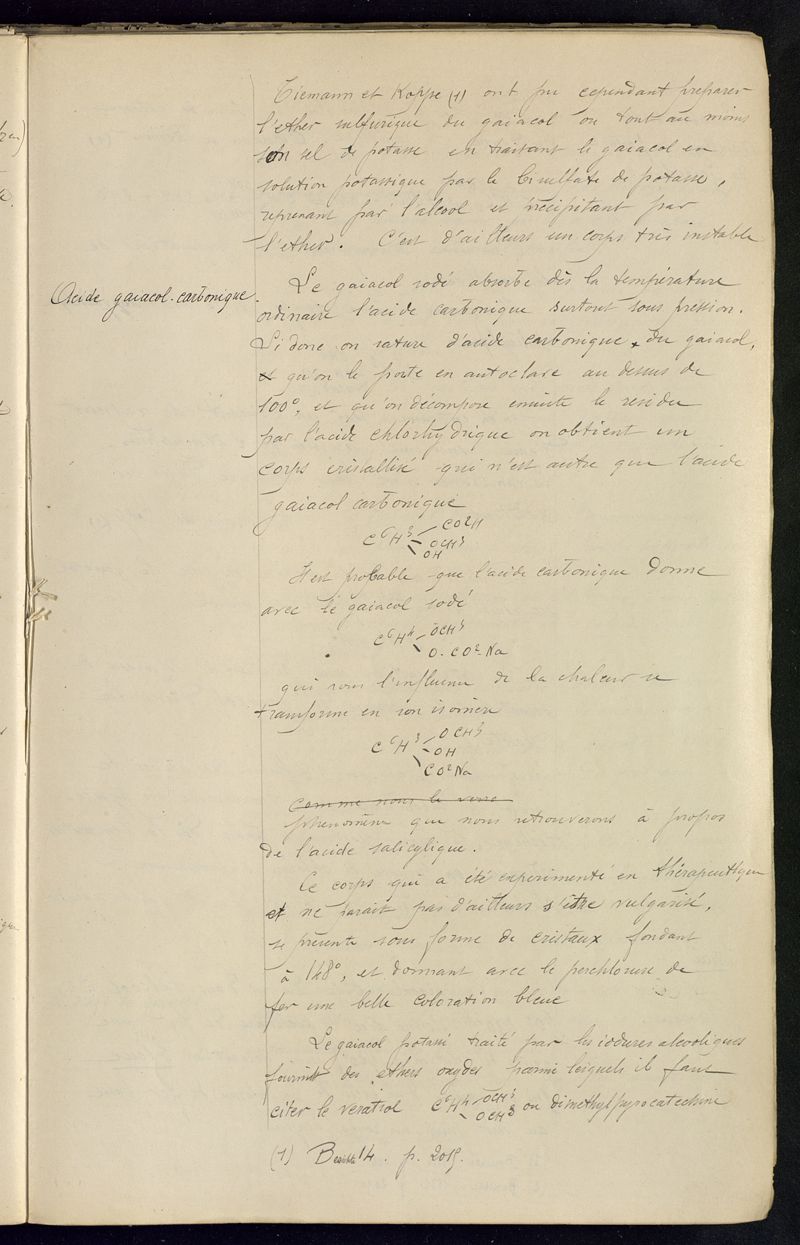 Tiemann et Koppe (1) ont pu cependant préparer
l'ether sulfurique du gaiacol ou tout au moins
son sel de potasse en traitant le gaiacol en
solution potassique par le bisulfate de potasse,
reprenant par l'alcool et précipitant par
l'ether. C'est d'ailleurs un corps très instable
Acide gaiacol-carbonique.
Le gaiacol sodé absorbe dès la température
ordinaire l'acide carbonique surtout sous pression.
Si donc on sature d'acide carbonique du gaiacol,
et qu'on le porte en autoclave au dessus de
100°, et qu'on décompose ensuite le residu
par l'acide chlorhydrique on obtient un
corps cristallisé qui n'est autre que l'acide
gaiacol carbonique
CO²H
C⁶H³ OCH³
OH
Il est probable que l'acide carbonique donne
avec le gaiacol sodé
C⁶H⁴ OCH³
O-CO²-Na
qui sous l'influence de la chaleur se
transforme en son isomère
C⁶H³ OCH³
OH
CO²Na
Comme nous le verro
phenomène que nous retrouverons à propos
de l'acide salicylique.
Ce corps qui a été experimenté en thérapeutique
et ne parait pas d'ailleurs s'être vulgarisé,
se présente sous forme de cristaux fondant
à 148°, et donnant avec le perchlorure de
fer une belle coloration bleue
Le gaiacol potassé traité par les iodures alcooliques
fournit des ethers oxydes parmi lesquels il faut
citer le veratrol C⁶H⁴ OCH³ OCH³ ou dimethylpyrocatechine
(1) 14. p. 2019.